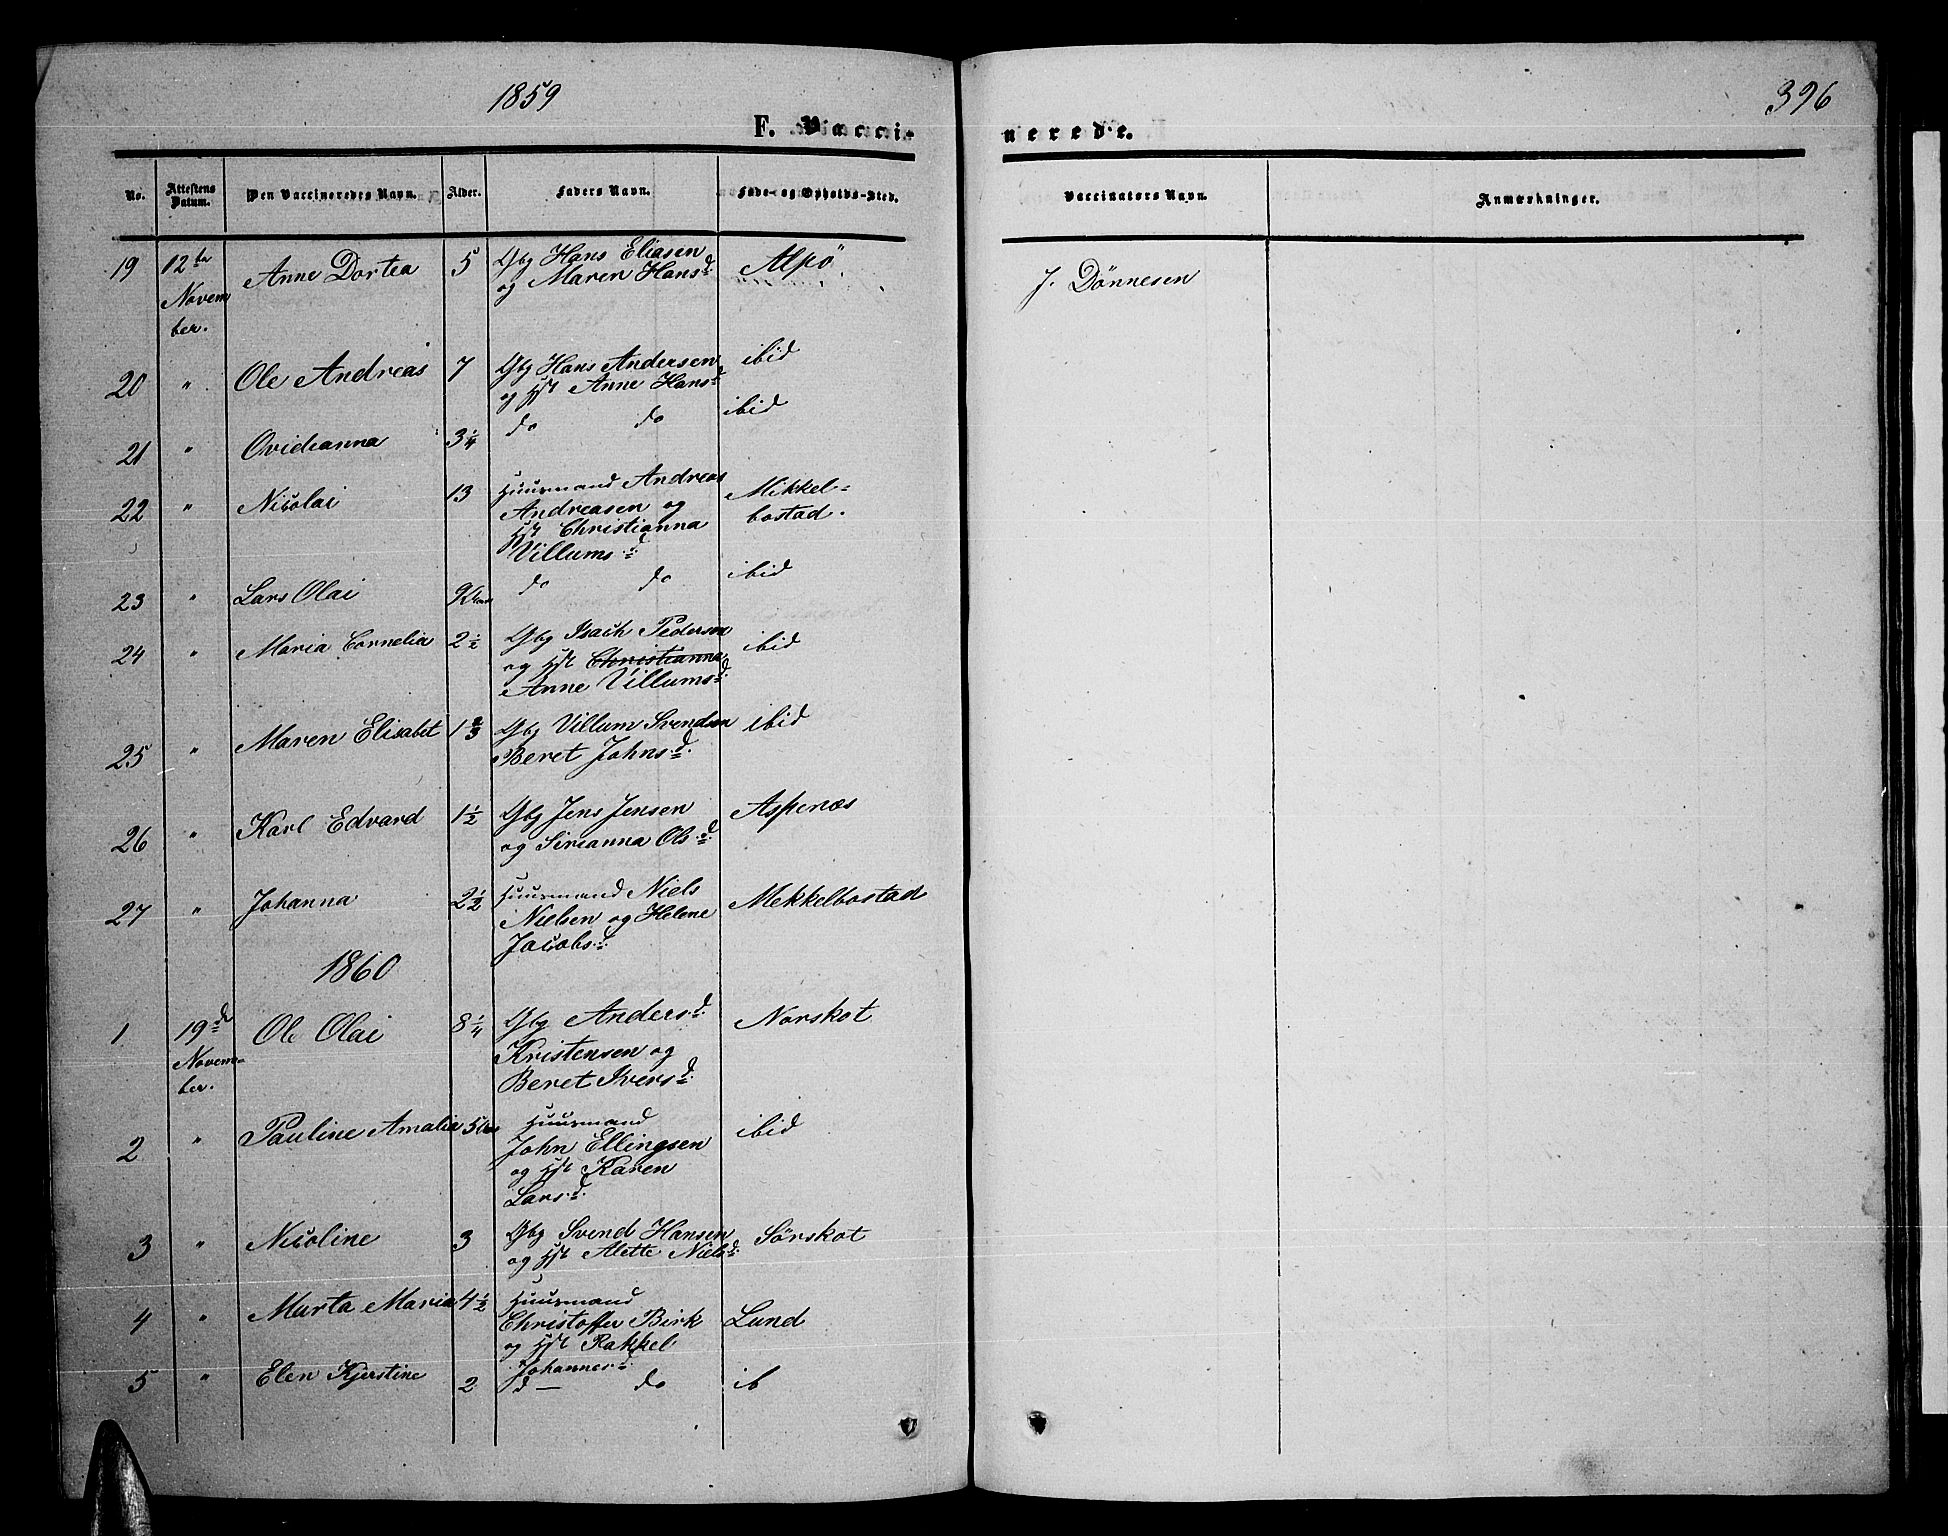 1859
396
F. Vacci-
nerede.
No. Attestens Datum. Den Vaccineredes Navn. Alder. Faders Navn. Føde- og Opholds-Sted. Vaccinators Navn. Anmærkninger.
19 12te November. Anne Dortea 5 Gbg Hans Eliasen
og Maren Hansd. Alpö J. Dönnesen
20 " Ole Andreas 7 Gbg Hans Andersen ibid
og Hst Anne Hansd.
21 " Ovidianna 3 1/4 do do ibid
22 " Nicolai 13 Huusmand Andreas Mikkel=
Andreasen og bostad.
Hst Christianna
Villumsd.
23 " Lars Olai 9 do do ibid
24 " Maria Cornelia 2 1/2 Gbg Isach Pedersen ibid
og Hst Christianna
Anne Villumsd.
25 " Maren Elisabet 1 2/3 Gbg Villum Svendsen ibid
Beret Johnsd.
26 " Karl Edvard 1 1/2 Gbg Jens Jensen Aspenæs
og Sirianna Olsd.
27 " Johanna 2 1/2 Huusmand Niels Mekkelbostad
Nielsen og Helene
Jacobsd.
1860
1 19de November. Ole Olai 8 1/4 Gbg Andersd. Norskot
Kristensen og
Beret Iversd.
2 " Pauline Amalia 5 Huusmand ibid
John Ellingsen
og Hst Karen
Larsd.
3 " Nicoline 3 Gbg Svend Hansen Sørskot
og Hst Alette Nielsd.
4 " Marta Maria 4 1/2 Huusmand
Christoffer Birk Lund
og Hst Rakkel
Johannesd.
5 " Elen Kjerstine 2 d — do ib